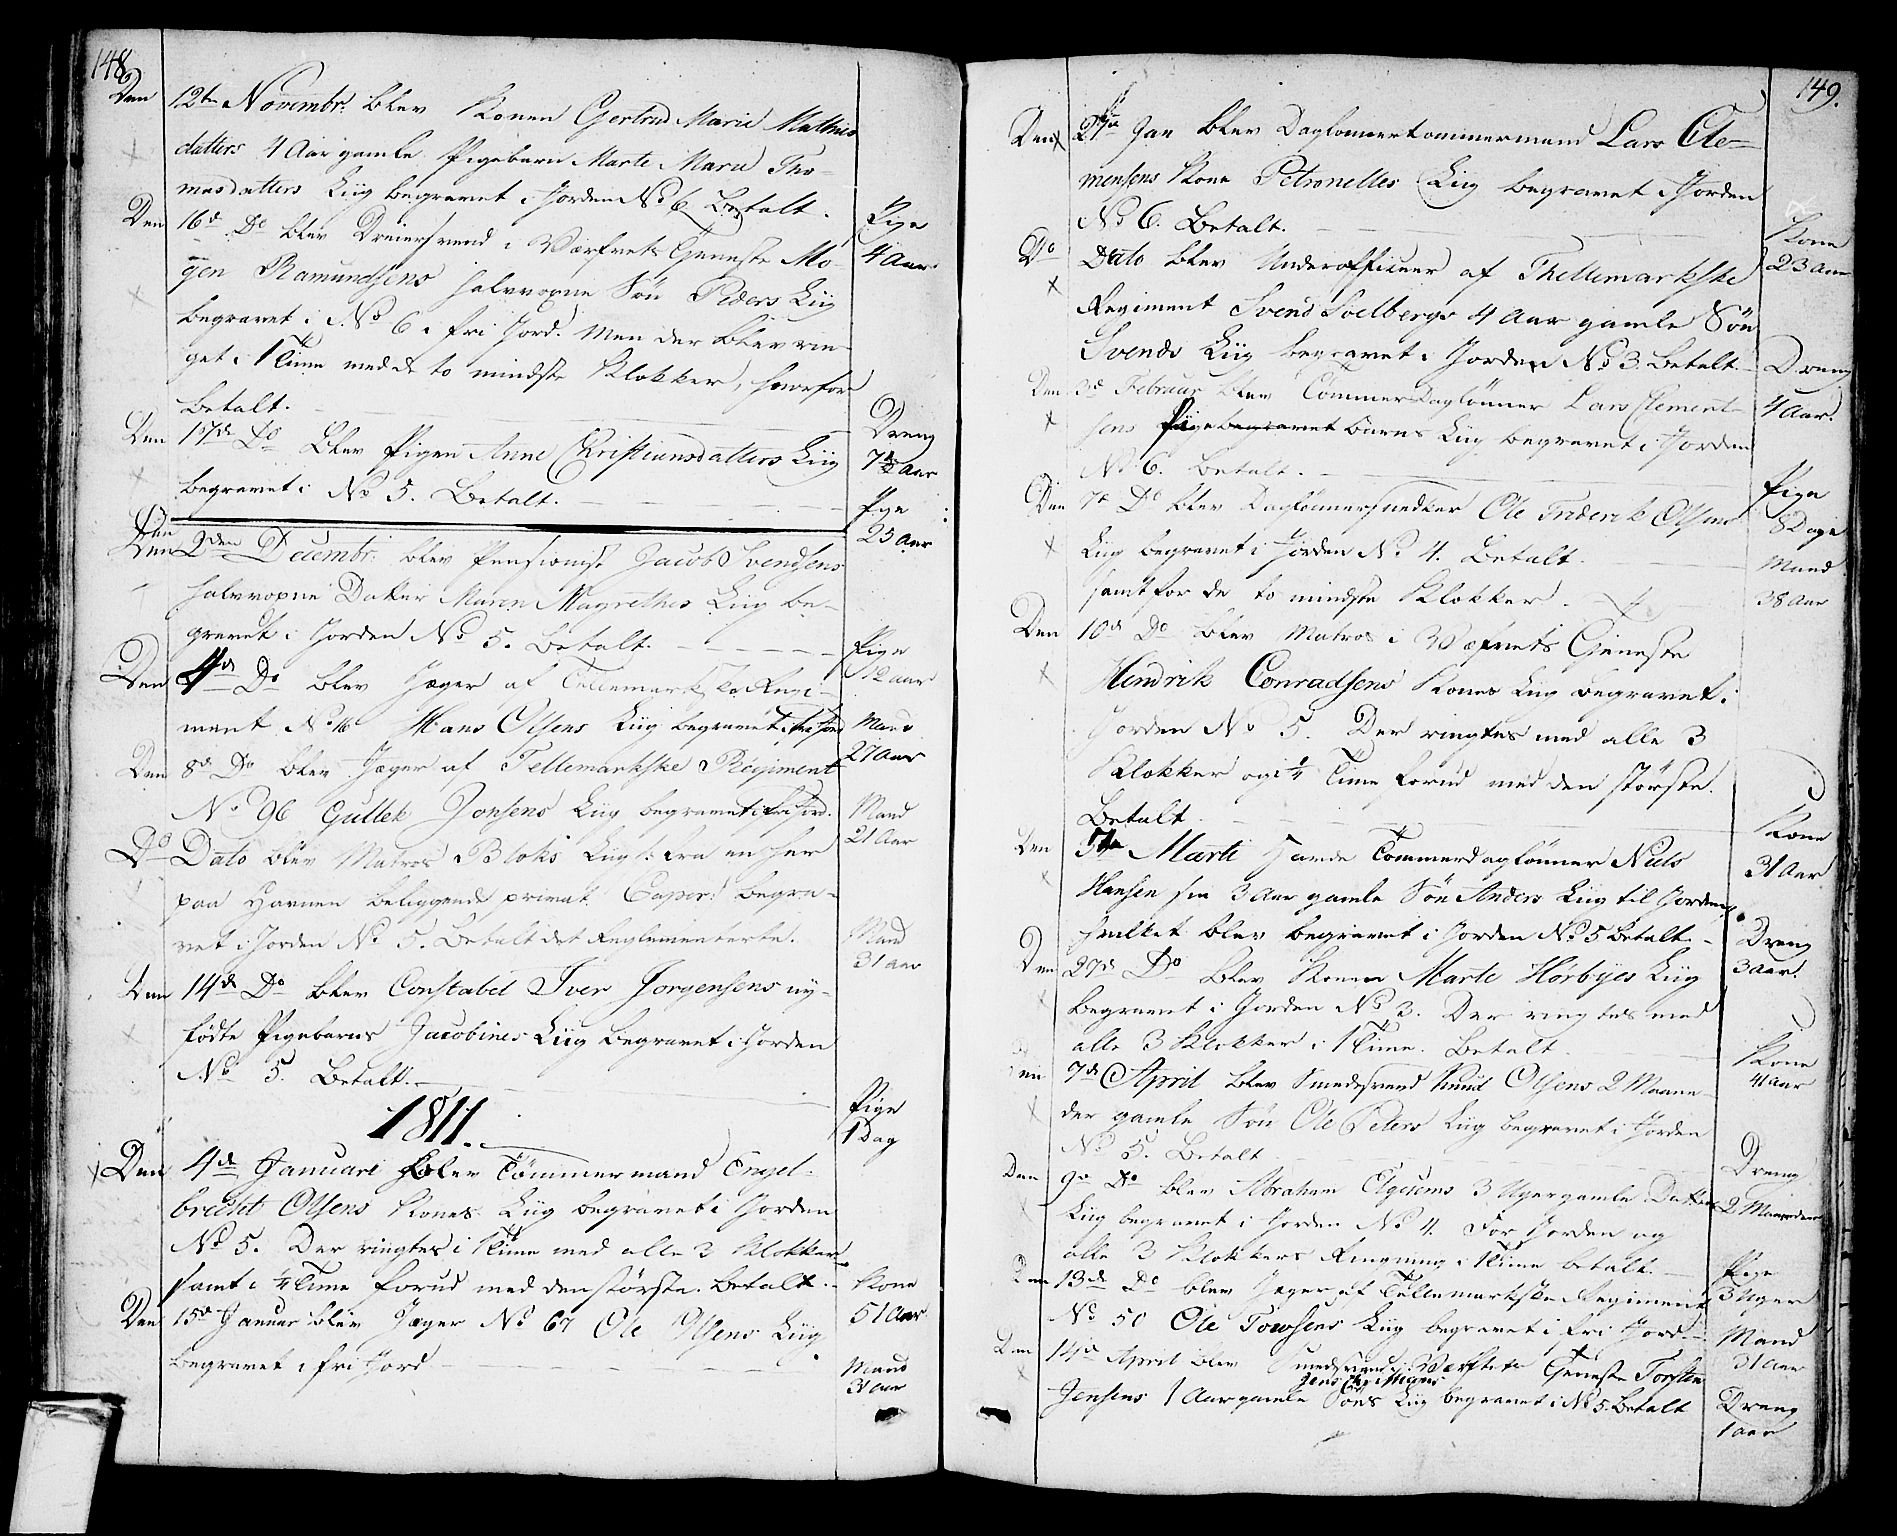 148
Den 12te Novembr. blev Konen Gertrud Maria Mathias
datters 4 Aar gamle Pigebarn Marte Maria Tho-
masdatters Liig begravet i Jorden No 6 Betalt. Pige
4 Aar
Den 16de Do blev Dreiersvend i Værfvets Tieneste Mo-
gen Ramundsens halvvoxne Søn Peders Liig
begravet i No 6 i fri Jord. Men der blev rin-
get i 1 Time med de to mindste Klokker, herfor
Betalt. Dreng
7½ Aar
Den 17de Do blev Pigen Anne Christiansdatters Liig
begravet i No 5. Betalt. Pige
25 Aar
Den 2den Decembr. blev Pensionist Jacob Svendsens
halvvoxne Datter Maren Magrethes Liig be-
gravet i Jorden No 5. Betalt. Pige
12 aar
Den 4de Do blev Jæger af Tellemarkske Regi-
ment No 16 Hans Olsens Liig begravet i fri Jord Mand
27 Aar
Den 8de Do blev Jæger af Tellemarkske Regiment
No 96 Gullek Jonsens Liig begravet i fri Jord. Mand
21 Aar
Do Dato blev Matros Bloks Liig /: fra en her
paa Havnen beliggende privat Caper :/ begra-
vet i Jorden No 5. Betalt det Reglementerte. Mand
31 aar
Den 14de Do blev Constabel Iver Jørgensens ny-
fødte Pigebarns Jacobines Liig begravet i Jorden
No 5. Betalt. Pige
1 Dag
1811.
Den 4de Januari blev Tømmermand Engel-
brecht Olsens Kones Liig begravet i Jorden
No 5. Der ringtes i 1 Time med alle 3 Klokker
samt i ¼ Time forud med den største. Betalt. Kone
51 Aar
Den 15de Januar blev Jæger No 67 Ole Olsens Liig
begravet i fri Jord Mand
31 aar
149.
Den 27de Jan blev Daglønnertømmermand Lars Cle-
mensens Kone Petronelles Liig begravet i Jorden
No 6. Betalt. Kone
23 Aar
Do Dato blev Underofficeer af Thellemarkske
Regiment Svend Solbergs 4 Aar gamle Søn
Svends Liig begravet i Jorden No 3. Betalt. Dreng
4 Aar.
Den Februar blev Tømmer Daglønner Lars Clement-
sens Pige begravet barns Liig begravet i Jorden
No 6. Betalt. Pige
8 Dage
Den 7de Do blev Daglønnersnedker Ole Friderik Olsens
Liig begravet i Jorden No 4. Betalt. Mand
samt for de to mindste Klokker. 38 Aar
Den 10de Do blev Matros i Værfvets Tieneste
Hendrik Conradsens Kones Liig begravet i
Jorden No 5. Der ringtes med alle 3
Klokker og i ¼ Time forud med den største.
Betalt. Kone
31 Aar
Den 5te Marti havde Tømmerdaglønner Niels
Hansen sin 3 Aar gamle Søn Anders Liig til Jorden
hvilket blev begravet i Jorden No 5 Betalt. Dreng
3 Aar.
Den 27de Do blev Konen Marte Hørbyes Liig
begravet i Jorden No 3. Der ringtes med
alle 3 Klokker i 1 Time. Betalt. Kone
41 Aar
Den 7de April blev Smedesvend Knud Olsens 2 Maane-
der gamle Søn Ole Peders Liig begravet i Jorden
No 5. Betalt. Dreng
2 Maaneder
Den 9de Do blev Abraham 3 Uger gamle Datters
Liig begravet i Jorden No 4. For Jorden og
alle 3 Klokkers Ringning i 1 Time betalt. Pige
3 Uger
Den 13de Do blev Jæger af Tellemarkske Regiment
No 50 Ole Liig begravet i fri Jord. Mand
31 Aar
Den 14de April blev Smedsvend i Værftets Tieneste Torsten
Jensens 1 Aar gamle Søns Liig begravet i No 5. Betalt Dreng
1 aar